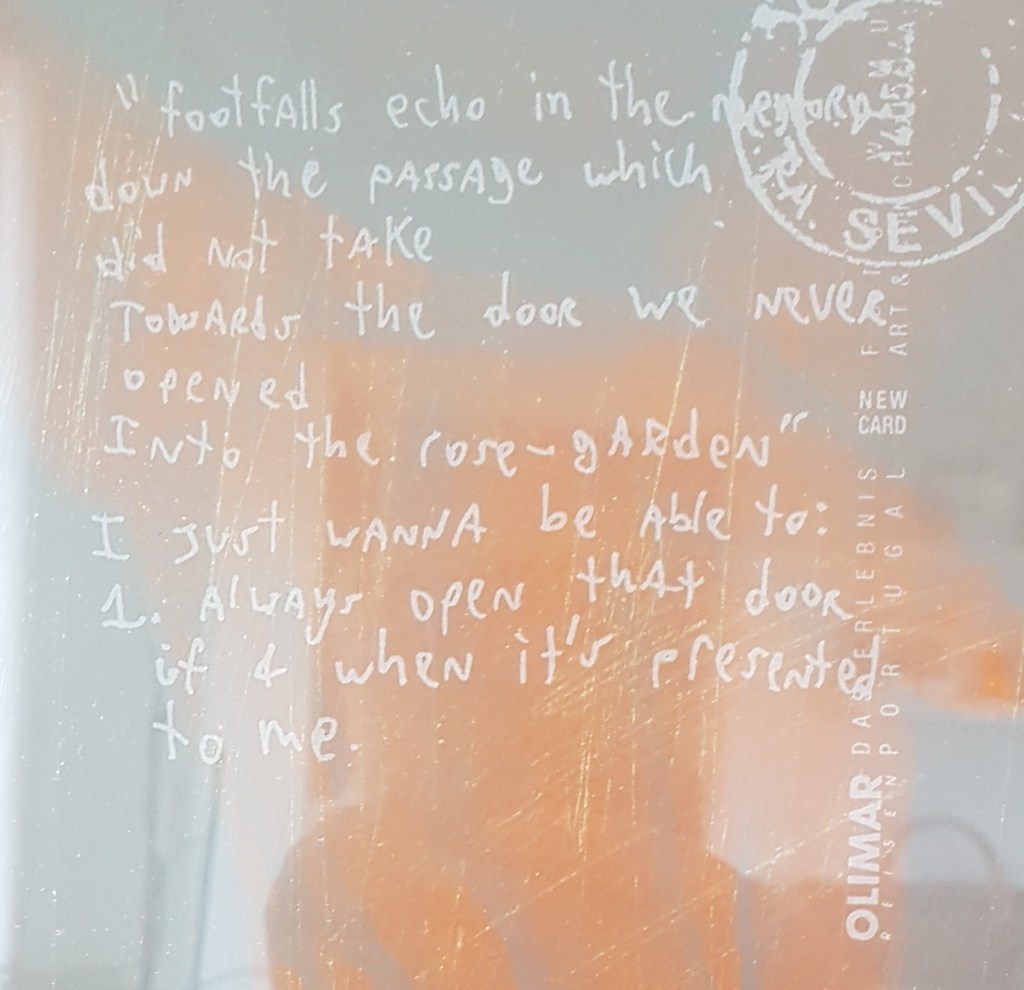 "footfAlls echo in the memory
down the pAssAge which
did not tAke
TowARds the door we never
opened
Into the rose-gARden"
I just wANNA be Able to:
1. AlwAys open thAt door
if & when it's presented
to me.
SEVIL
NEW
CARD
OLIMAR DAS ERLEBNIS
REISEN PORTUGAL ART &